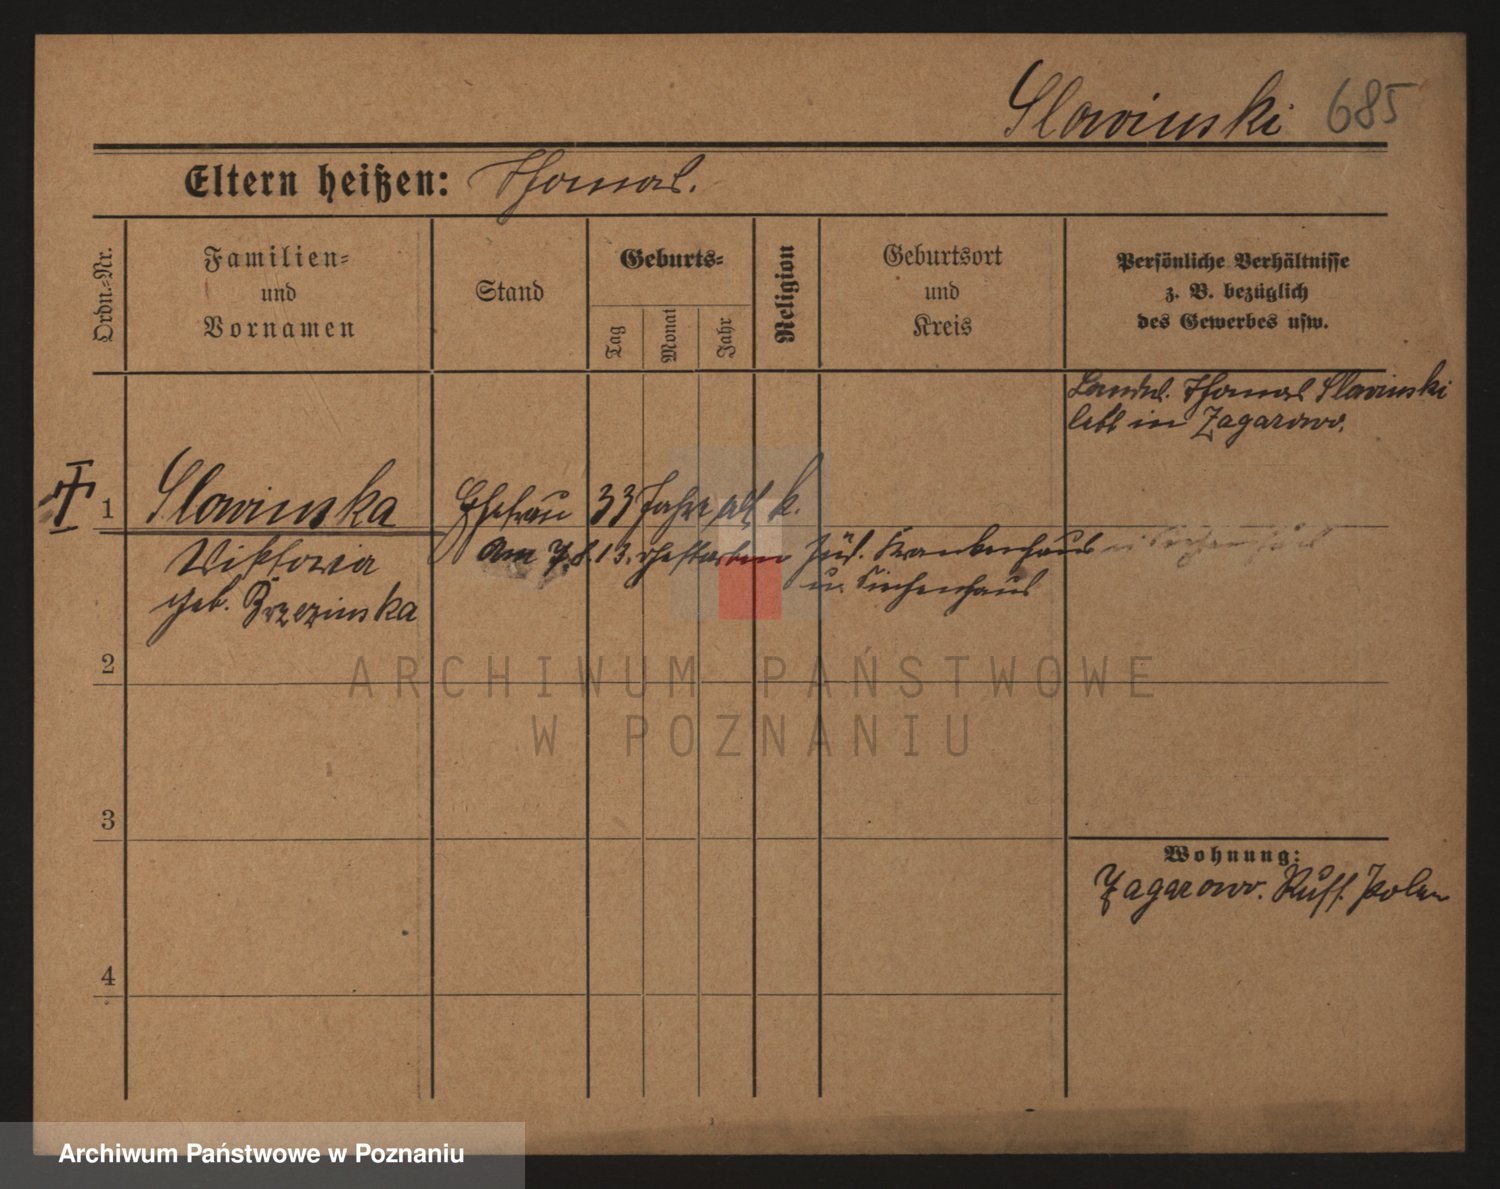 Slowinski 685
Eltern heißen: Thomas.
Ordn.-Nr.
Familien-
und
Vornamen
Stand
Geburts-
Tag
Monat
Jahr
Religion
Geburtsort
und
Kreis
Persönliche Verhältnisse
z. B. bezüglich
des Gewerbes usw.
Thomas Slowinski
lebt in Zagarowo.
1 Slowinska Ehefrau 33 Jahre alt k.
Viktoria
geb. Brzezinska
Am 7.8.13. verstorben Jüd. Krankenhaus
u. Siechenhaus
2
3
4
Wohnung:
Zagarowo. Russ. Polen
ARCHIWUM PAŃSTWOWE
W POZNANIU
Archiwum Państwowe w Poznaniu